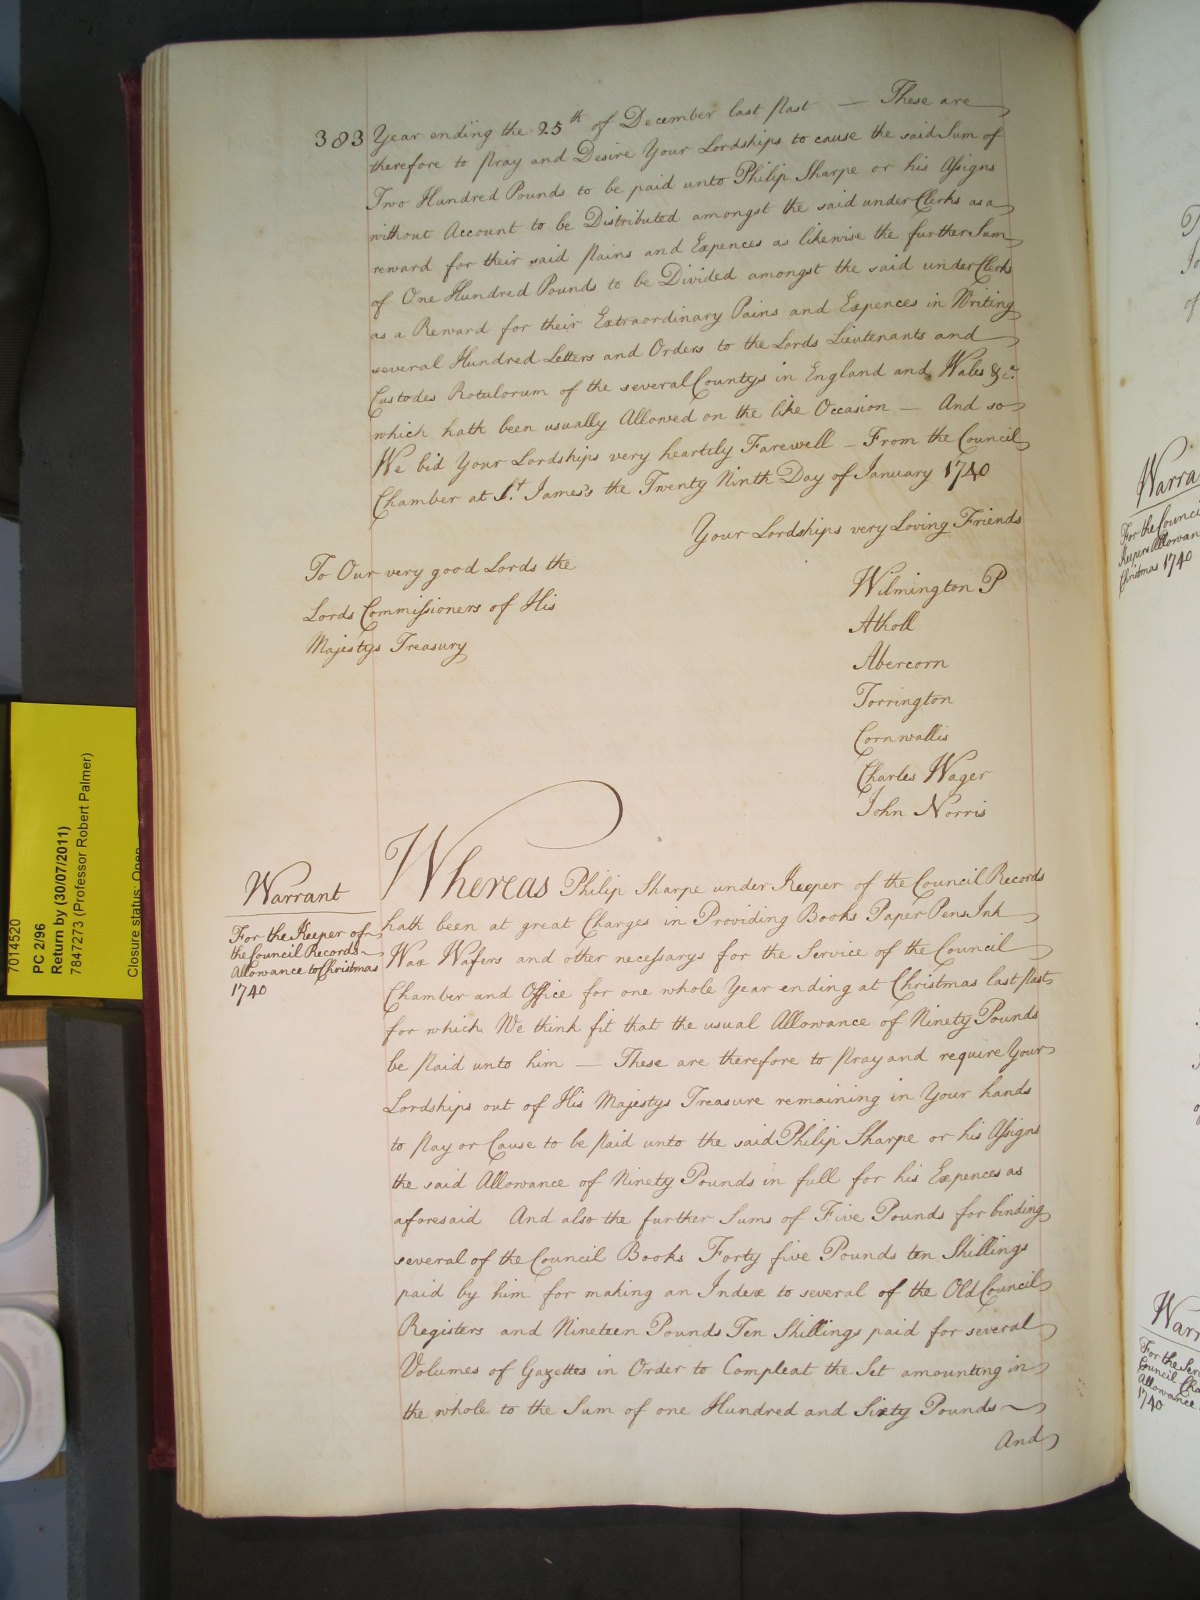 383 Year ending the 25th of December last Past — These are
therefore to Pray and Desire Your Lordships to cause the said Sum of
Two Hundred Pounds to be paid unto Philip Sharpe or his Assigns
without Account to be Distributed amongst the said under Clerks as a
reward for their said Pains and Expences as likewise the further Sum
of One Hundred Pounds to be Divided amongst the said under Clerks
as a Reward for their Extraordinary Pains and Expences in Writing
several Hundred Letters and Orders to the Lords Lieutenants and
Custodes Rotulorum of the several Countys in England and Wales &ca.
which hath been usually Allowed on the like Occasion — And so
We bid Your Lordships very heartily Farewell — From the Council
Chamber at St. James's the Twenty Ninth Day of January 1740
Your Lordships very Loving Friends
To Our very good Lords the
Lords Commissioners of His
Majestys Treasury
Wilmington P
Atholl
Abercorn
Torrington
Cornwallis
Charles Wager
John Norris
Warrant
For the Keeper of
the Council Records
Allowance to Christmas
1740
Whereas Philip Sharpe under Keeper of the Council Records
hath been at great Charges in Providing Books Paper Pens Ink
Wax Wafers and other necessarys for the Service of the Council
Chamber and Office for one whole Year ending at Christmas last Past
for which We think fit that the usual Allowance of Ninety Pounds
be Paid unto him — These are therefore to Pray and require Your
Lordships out of His Majestys Treasure remaining in Your hands
to Pay or Cause to be Paid unto the said Philip Sharpe or his Assigns
the said Allowance of Ninety Pounds in full for his Expences as
aforesaid And also the further Sums of Five Pounds for binding
several of the Council Books Forty five Pounds ten Shillings
paid by him for making an Index to several of the Old Council
Registers and Nineteen Pounds Ten Shillings paid for several
Volumes of Gazettes in Order to Compleat the Set amounting in
the whole to the Sum of one Hundred and Sixty Pounds
And
7014520
PC 2/96
Return by (30/07/2011)
7847273 (Professor Robert Palmer)
Closure status: Open
Warra
For the Council
Keepers Allowan
Christmas 1740
Warr
For the Ser
Council Cha
Allowance
1740